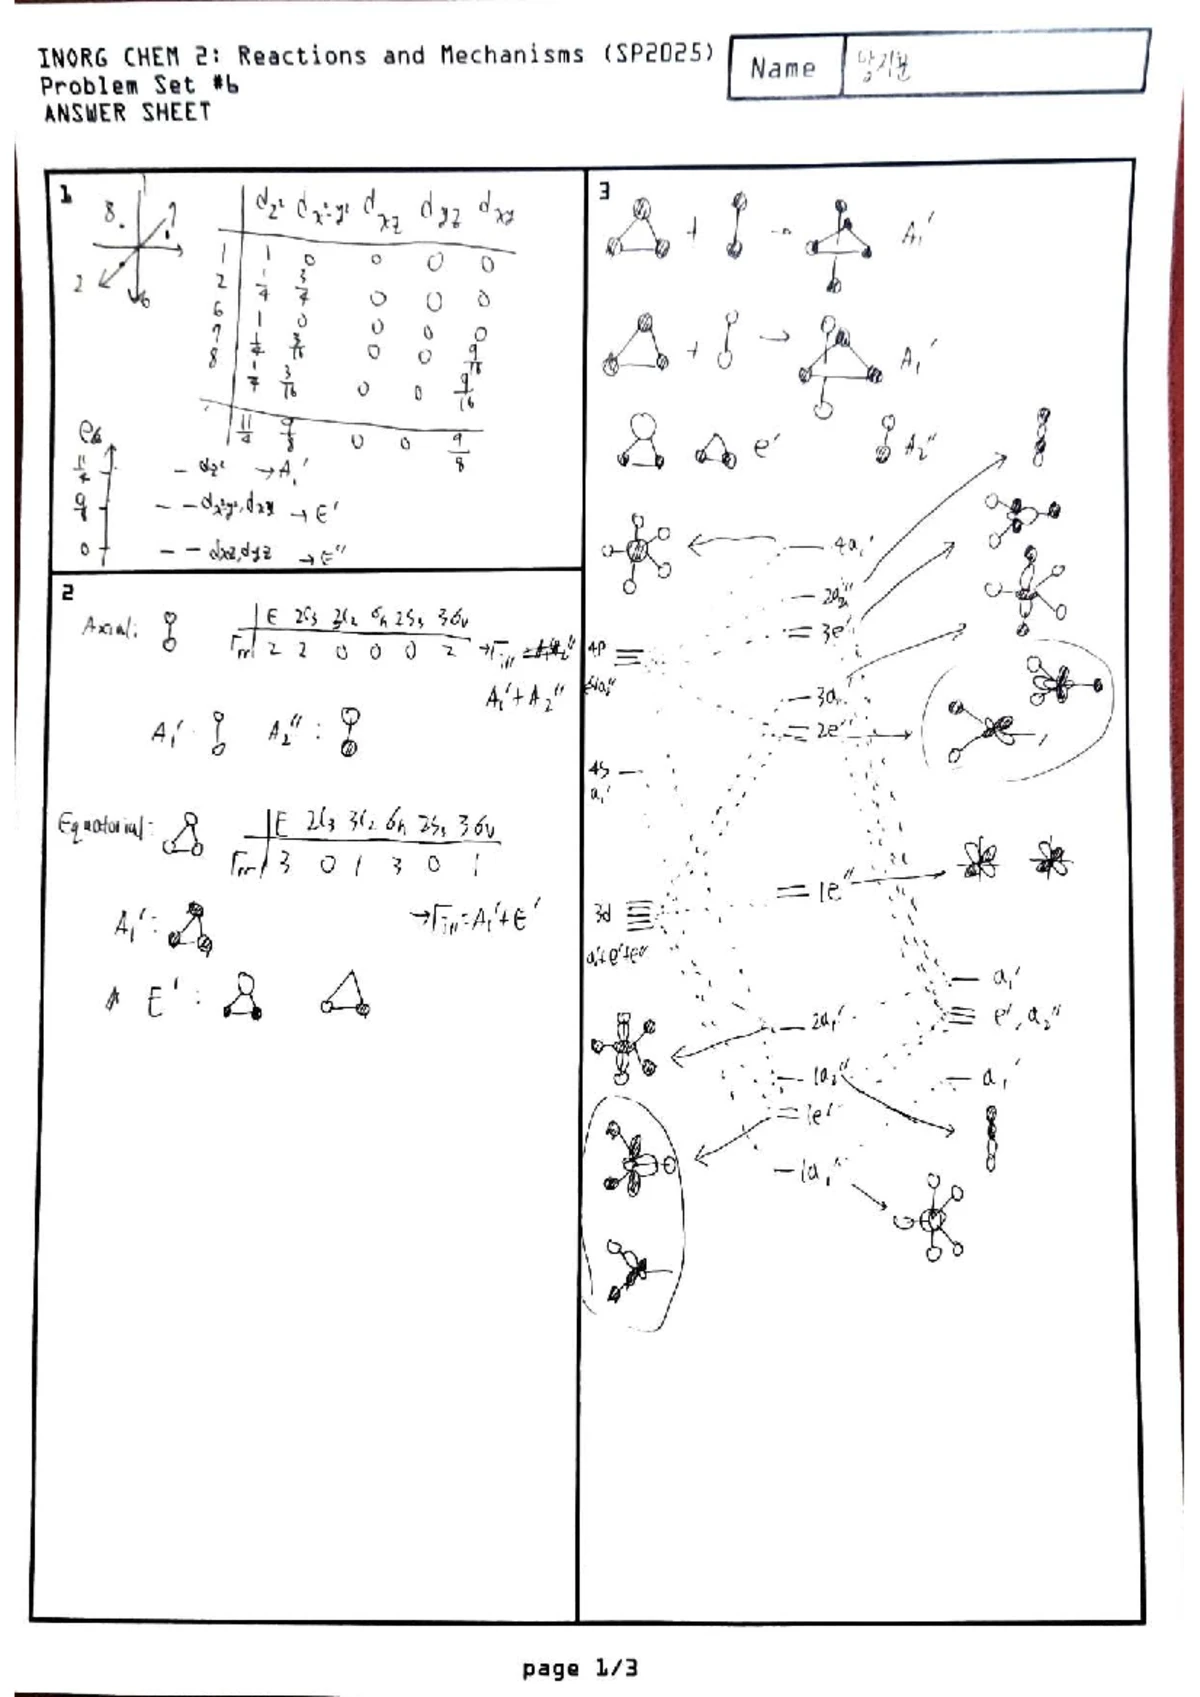 INORG CHEM 2: Reactions and Mechanisms (SP2025)
Problem Set #6
ANSWER SHEET
Name
1
8. 7
2 6
d_z² d_x²-y² d_xz d_yz d_xy
1 1 0 0 0 0
2 1/4 3/4 0 0 0
6 1 0 0 0 0
7 1/4 3/16 0 0 9/16
8 1/4 3/16 0 0 9/16
11/4 9/8 0 0 9/8
eσ
11/4 — dz² → A₁'
9/8 — — dx²-y², dxy → E'
0 — — dxz, dyz → E''
2
Axial:
E 2C₃ 3C₂ σh 2S₃ 3σv
Γrr 2 2 0 0 0 2 → Γirr =
A₁' + A₂''
A₁': A₂'':
Equatorial:
E 2C₃ 3C₂ σh 2S₃ 3σv
Γrr 3 0 1 3 0 1
A₁':
→ Γirr = A₁' + E'
E':
3
+ → A₁'
+ → A₁'
e' A₂''
4a₁'
2a₂''
3e'
4p
3a₁'
2e'
4s
a₁'
1e''
3d
a₁'+e'+e''
a₁'
2a₁'
e', a₂''
1a₂''
a₁'
1e'
1a₁'
page 1/3